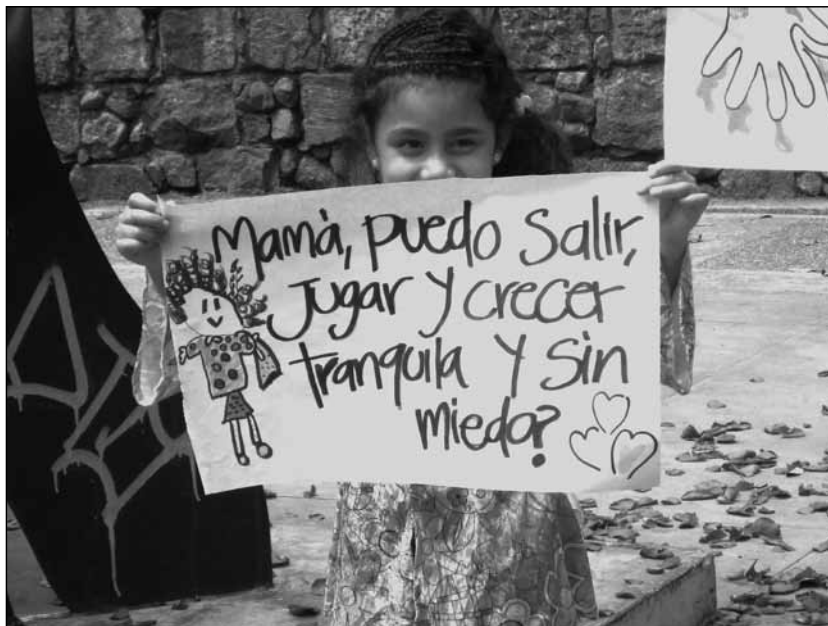 Mamà, puedo Salir,
Jugar y crecer
tranquila y sin
miedo?